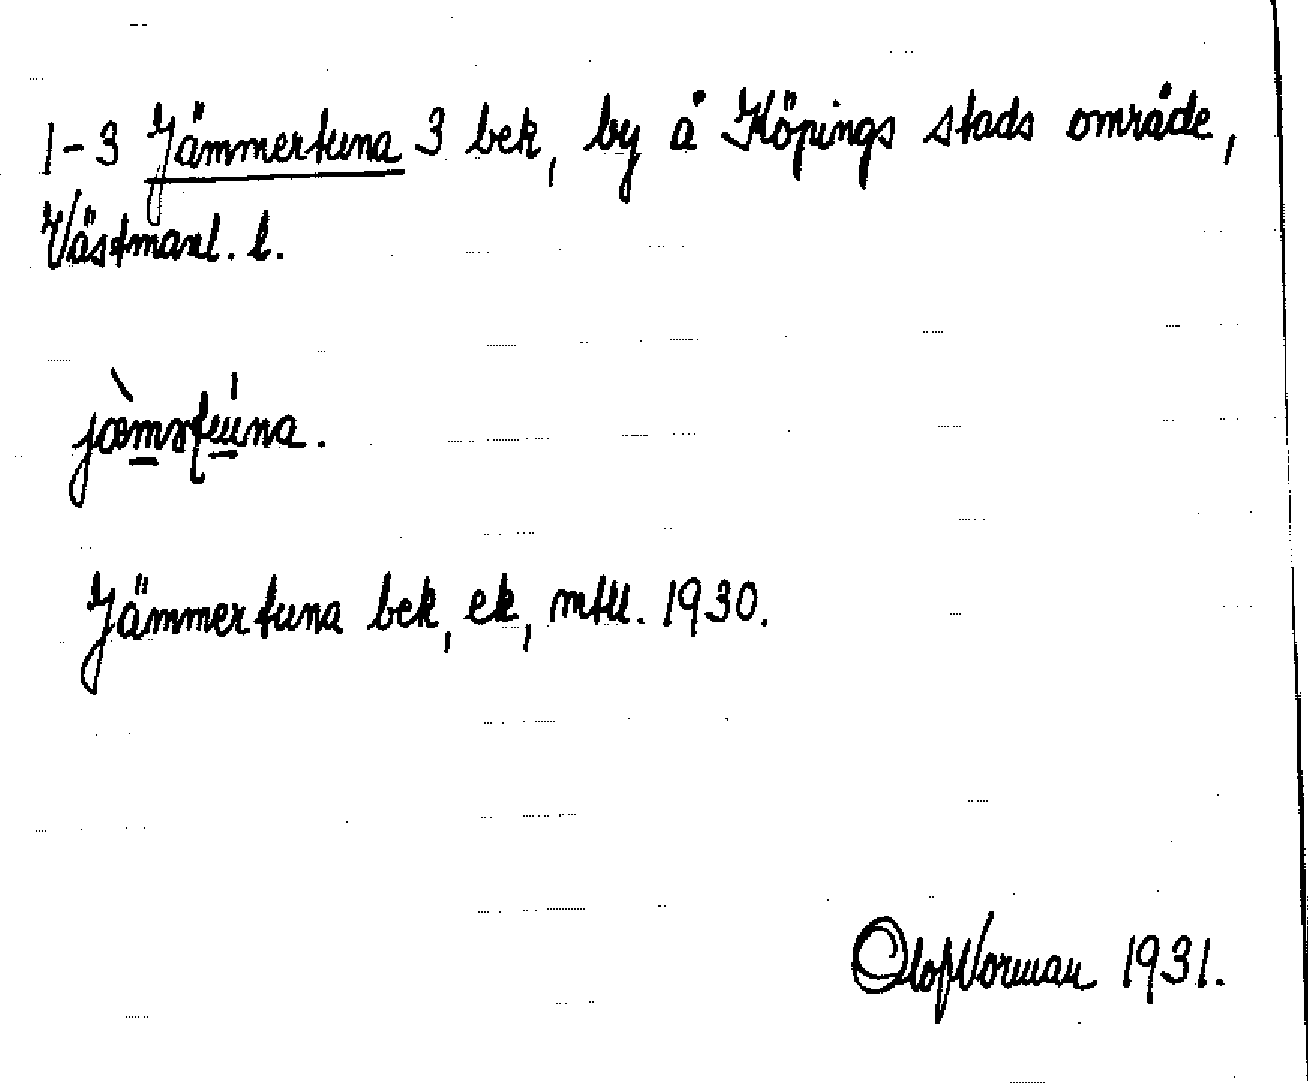 1-3 Jämmertuna 3 bek, by å Köpings stads område,
Västmanl. l.
jæ̀mstúna.
Jämmertuna bek, ek, mtll. 1930.
Olof Norman 1931.